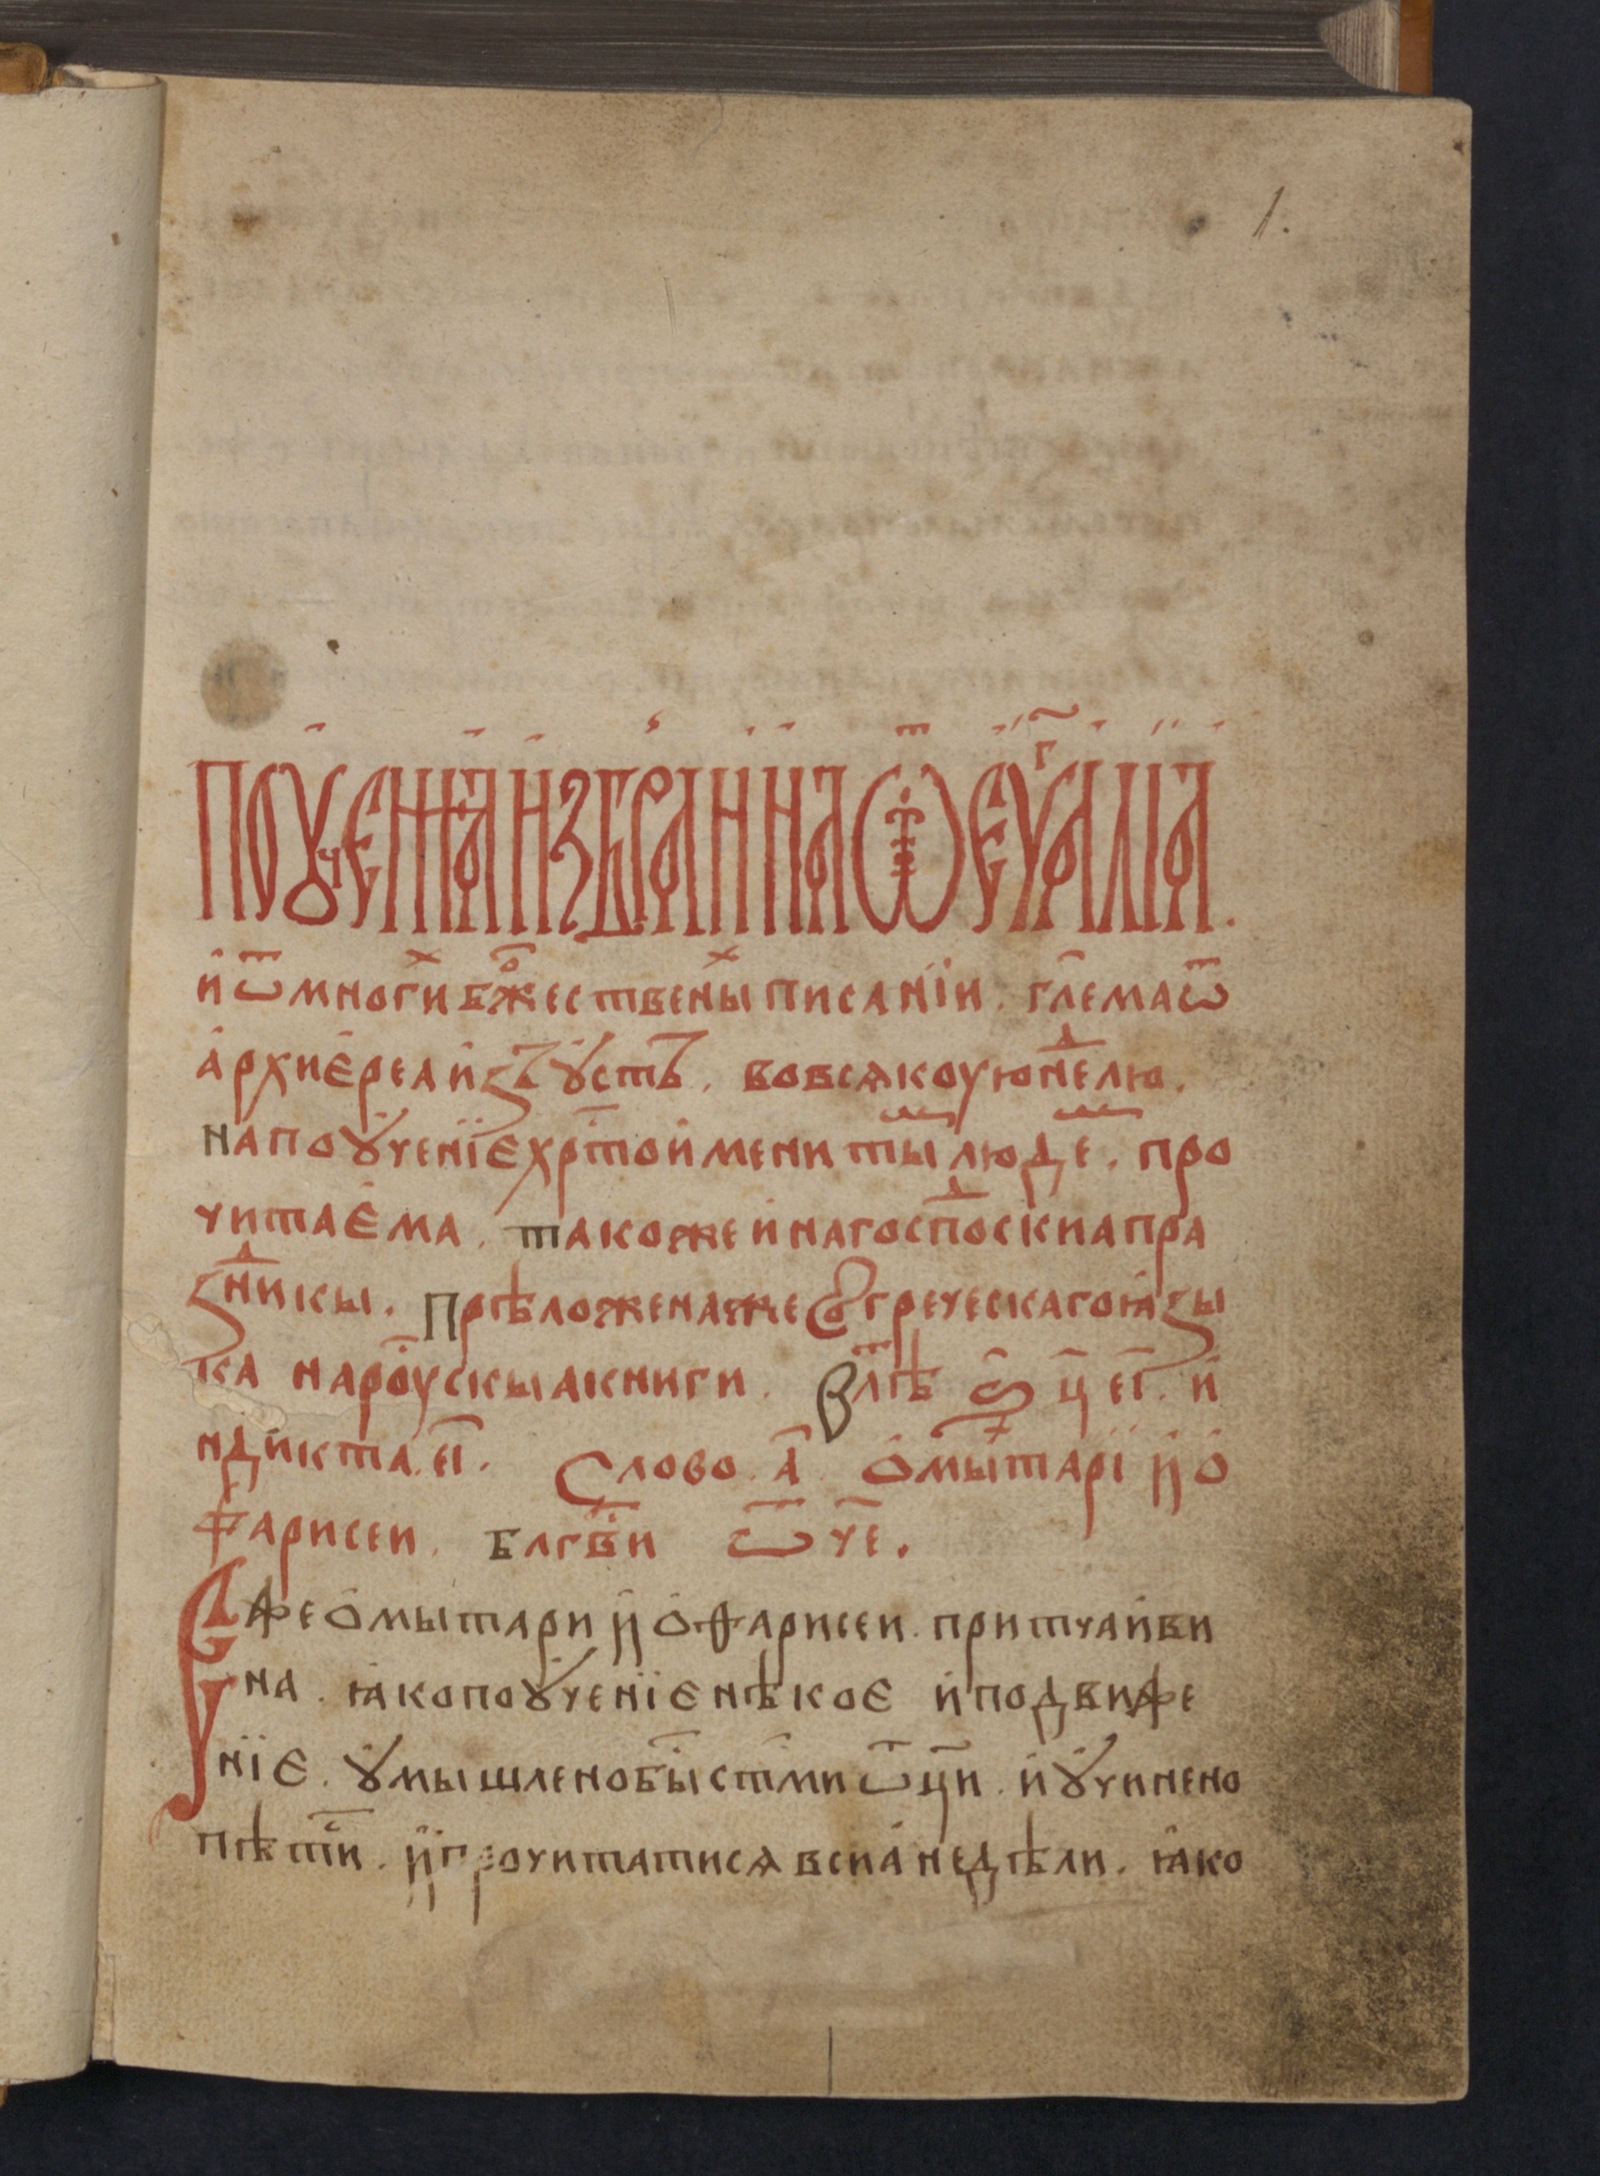 1.
Поꙋченїа избраннаа ѿ еѵⷢ҇алїа.
и҆ ѿ многи́ⷯ бж҃ⷭ҇ественыⷯ писанїи. гл҃ема ѿ
а҆рхиєреа и҆зъ ꙋстъ. во всѧкоую неⷣлю.
на поꙋченїє хрⷭ҇тоименитыⷨ людеⷨ. про
читаєма. такоже и҆ на госпоⷣскиа пра
зⷣникы. Прѣложена же ѿ греческаго ꙗ҆зы
ка на роускыа книги. Влⷮѣ ҂ѕ҃ ц҃ еі҃. и҆
ндикта. еі҃. Слово. а҃. ѡ҆ мытарї и҆ ѡ҆
фарисеи. блгⷭ҇ви ѿче.
Єѵⷢ҇аже ѡ҆ мытари и҆ ѡ҆ фарисеи. притча и҆ ви
на. ꙗ҆ко поꙋченїє нѣкоє и҆ подвиже
нїє. ꙋ҆мышлено бы́ стⷨ҇ми ѿц҃и. и҆ ꙋ҆чинено
пѣтⷭ҇и. и҆ прочитатисѧ в сиа̀ недѣли. ꙗ҆ко